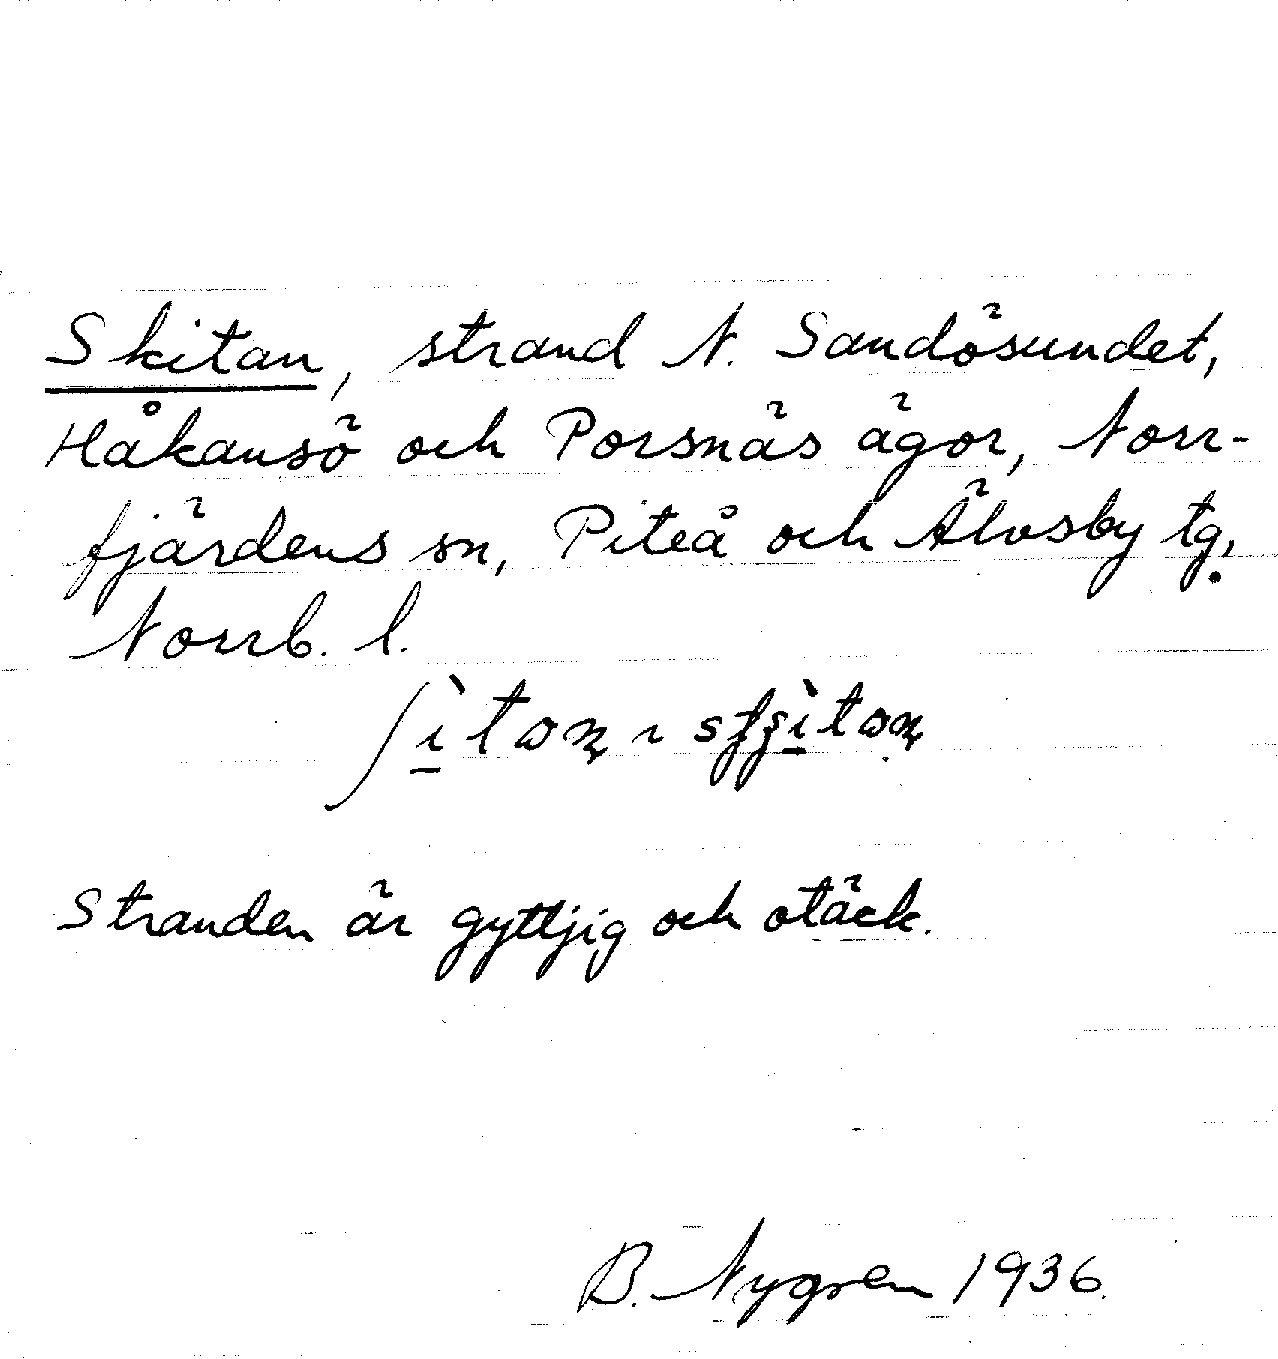 Skitan, strand N. Sandösundet,
Håkansö och Porsnäs ägor, Norr-
fjärdens sn, Piteå och Älvsby tg,
Norrb. l.
Stranden är gyttjig och otäck.
B. Nygren 1936.